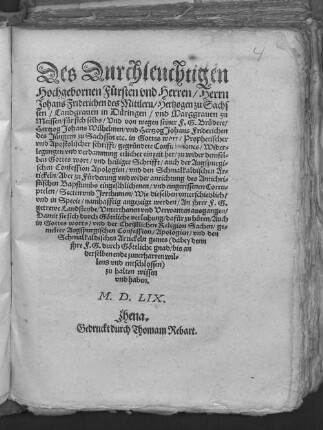 4
Des Durchleuchtigen
Hochgebornen Fürsten vnd Herren/ Herrn
Johans Friderichen des Mittlern/ Hertzogen zu Sachs
sen/ Landgrauen in Düringen/ vnd Marggrauen zu
Meissen/ für sich selbs/ Vnd von wegen seiner F. G. Brüdere/
Hertzog Johans Wilhelmen/ vnd Hertzog Johans Friderichen
des Jüngern zu Sachssen/ etc. in Gottes wort/ Prophetischer
vnd Apostolischer schrifft/ gegründete Confutationes/ Wider-
legungen/ vnd verdamnung etlicher ein zeit her/ zu wider demsel-
ben Gottes wort/ vnd heiliger Schrifft/ auch der Augspurgi-
schen Confession Apologien/ vnd den Schmalkaldischen Ar-
tickeln/ Aber zu Fürderung vnd wider anrichtung des Antichri-
stischen Bapstumbs eingeschlichenen/ vnd eingerissenen Corrup-
telen/ Secten vnd Irrthumen/ Wie dieselben vnterschiedlich/
vnd in Specie/ namhafftig angezeigt werden/ An jhrer F. G.
getrewe Landstende/ Vnterthanen vnd Verwanten ausgangen/
Damit sie sich durch Göttliche verleihung/ dafür zu hüten/ Auch
in Gottes worts/ vnd der Christlichen Religion Sachen/ ge-
melter Augspurgischen Confession/ Apologien/ vnd den
Schmalkaldischen Artickeln gemes (dabey denn
jhre F. G. durch Göttliche gnad/ bis an
derselben ende zuuerharren wil-
lens vnd entschlossen)
zu halten wissen
vnd haben.
M. D. LIX.
Jhena.
Gedruckt durch Thomam Rebart.